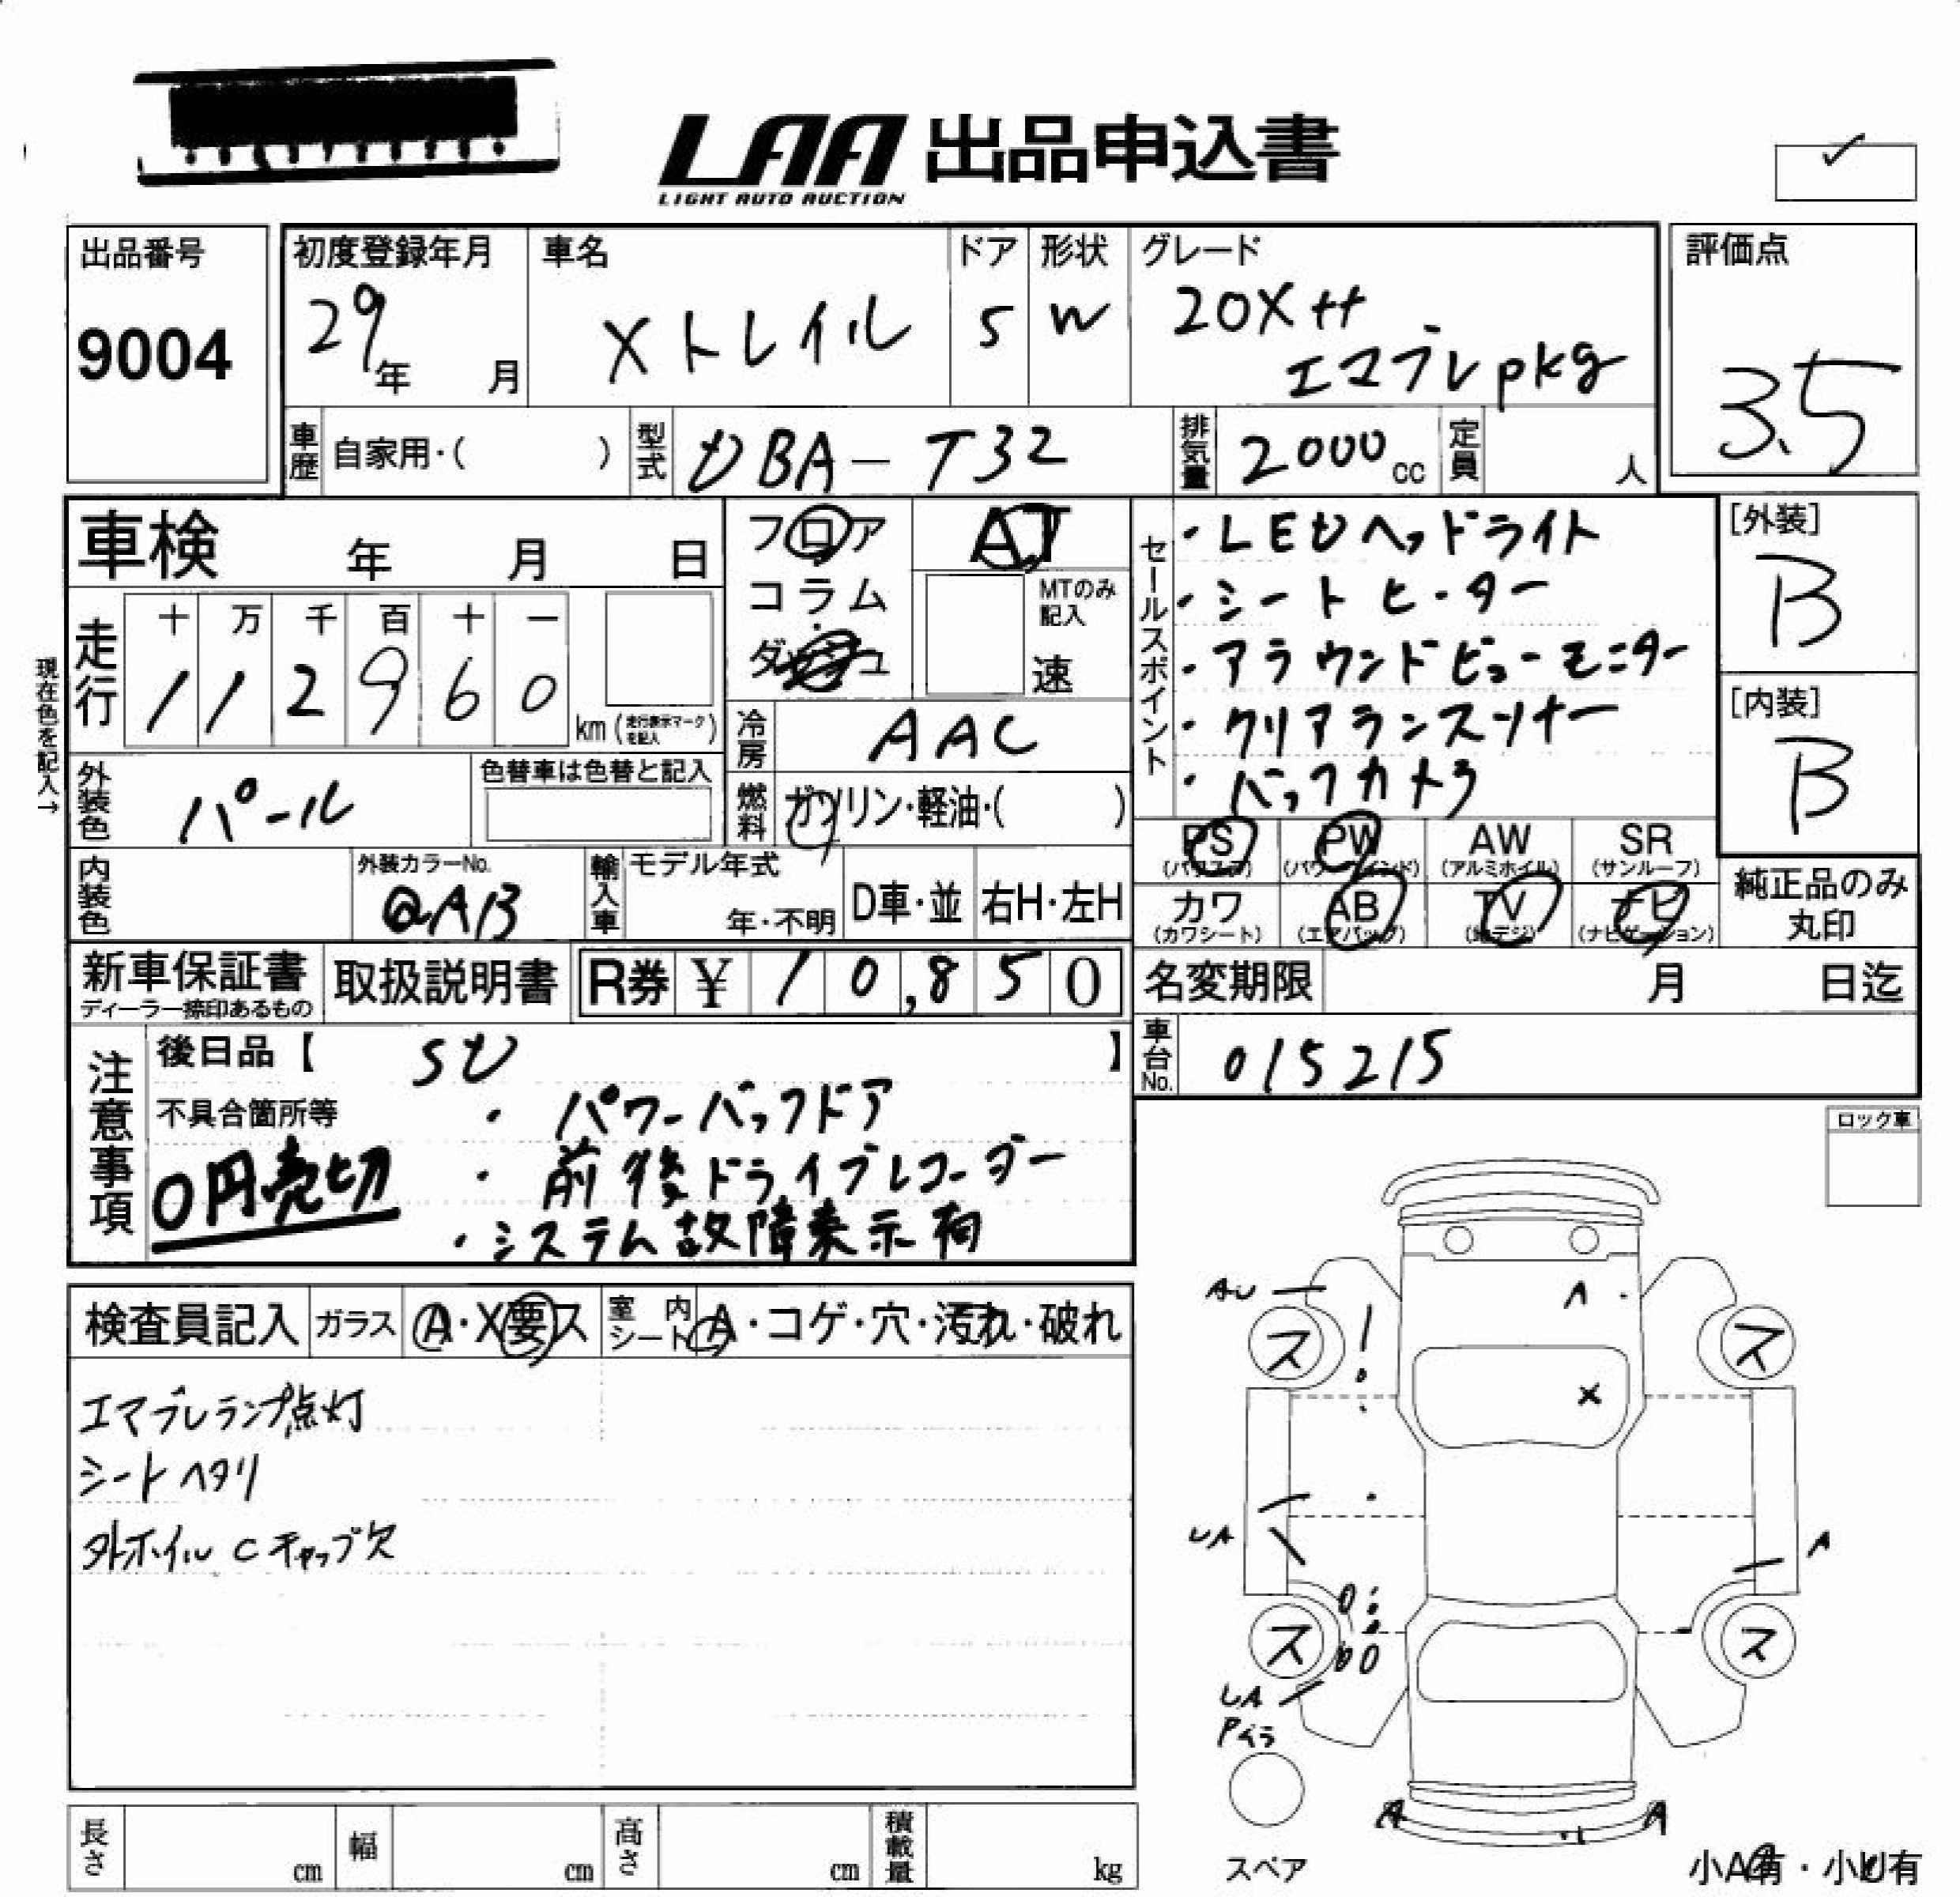 LAA 出品申込書
LIGHT AUTO AUCTION
出品番号
9004
初度登録年月
29年 月
車名
Xトレイル
ドア
5
形状
W
グレード
20Xtt
エマブレpkg
評価点
3.5
車歴 自家用・( )
型式 DBA-T32
排気量 2000cc
定員 人
車検 年 月 日
フロア
コラム
ダッシュ
AT
MTのみ記入
速
現在色を記入→
走行
十 万 千 百 十 一
1 1 2 9 6 0
km (走行表示マークを記入)
冷房 AAC
外装色 パール
色替車は色替と記入
燃料 ガソリン・軽油・( )
内装色
外装カラーNo.
QAB
輸入車
モデル年式
年・不明
D車・並
右H・左H
セールスポイント
・LEDヘッドライト
・シートヒーター
・アラウンドビューモニター
・クリアランスソナー
・バックカメラ
[外装]
B
[内装]
B
PS (パワステ)
PW (パワーウインド)
AW (アルミホイル)
SR (サンルーフ)
カワ (カワシート)
AB (エアバッグ)
TV (地デジ)
ナビ (ナビゲーション)
純正品のみ
丸印
新車保証書
ディーラー捺印あるもの
取扱説明書
R券 ¥ 10,850
名変期限 月 日迄
車台No. 015215
注意事項
後日品【 SD 】
不具合箇所等
・パワーバックドア
0円売切
・前後ドライブレコーダー
・システム故障表示有
ロック車
検査員記入
ガラス A・X要ス
室内シート A・コゲ・穴・汚れ・破れ
エマブレランプ点灯
シートヘタリ
外ホイルCキャップ欠
AU
A
ス
ス
X
UA
A
ス
ス
UA
Pイラ
A
A
スペア
小A有・小U有
長さ cm
幅 cm
高さ cm
積載量 kg